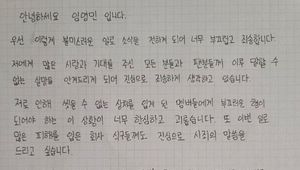 안녕하세요 임영민 입니다.
우선 이렇게 불미스러운 일로 소식을 전하게 되어 너무 부끄럽고 죄송합니다.
저에게 많은 사랑과 기대를 주신 모든 분들과 팬분들께 이루 말할 수
없는 실망을 안겨드리게 되어 진심으로 죄송하게 생각하고 있습니다.
저로 인해 씻을 수 없는 상처를 입게 된 멤버들에게 부끄러운 형이
되어야 하는 이 상황이 너무 한심하고 괴롭습니다. 또 이번 일로
많은 피해를 입은 회사 식구들께도 진심으로 사죄의 말씀을
드리고 싶습니다.